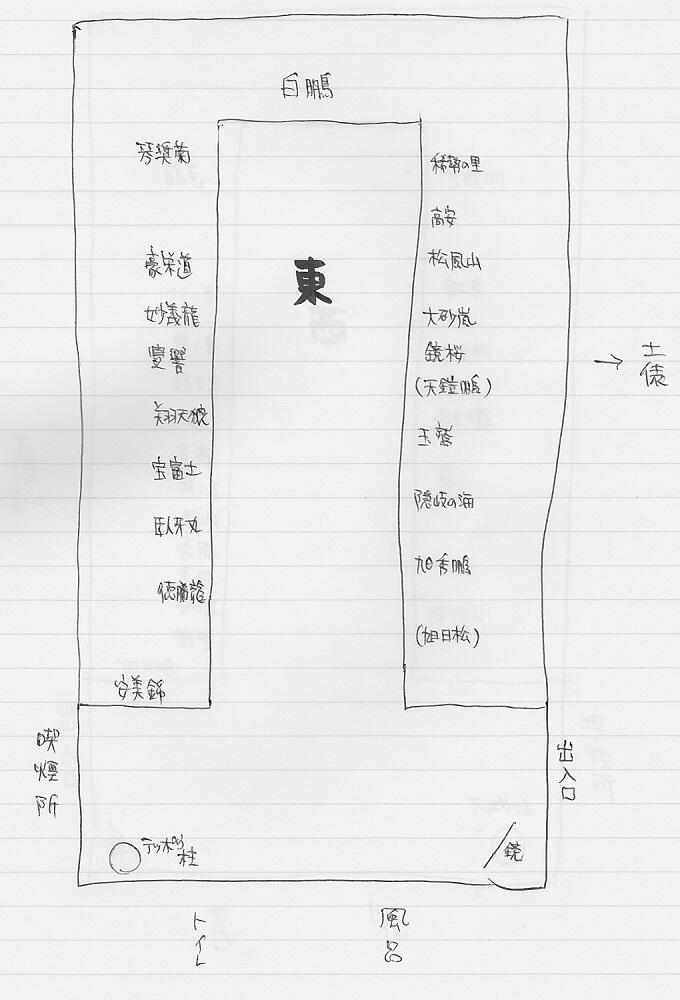 白鵬
琴奨菊
豪栄道
妙義龍
豊響
翔天狼
宝富士
臥牙丸
徳勝龍
安美錦
東
稀勢の里
高安
松鳳山
大砂嵐
鏡桜
(天鎧鵬)
玉鷲
隠岐の海
旭秀鵬
(旭日松)
→ 土俵
喫煙所
出入口
テッポウ柱
鏡
トイレ
風呂